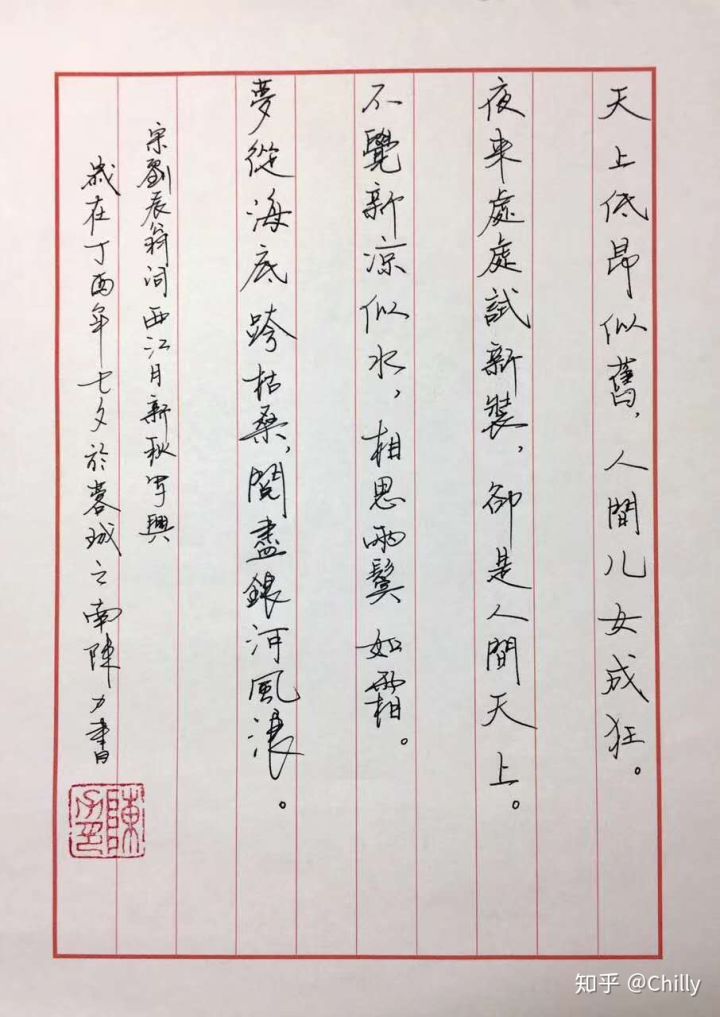 天上低昂似舊，人間儿女成狂。
夜来處處試新裝，卻是人間天上。
不覺新凉似水，相思兩鬓如霜。
夢從海底跨枯桑，閲盡銀河風浪。
宋劉辰翁词西江月新秋写興
歲在丁酉年七夕於蓉城之南陳力書
陳力印
知乎 @Chilly